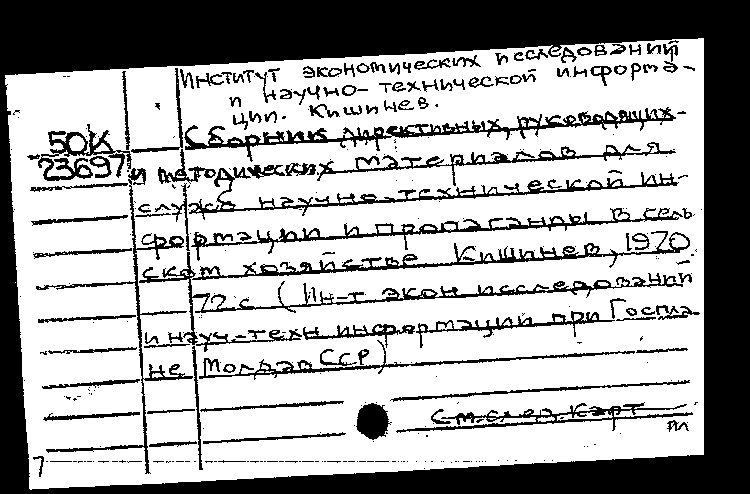 Институт экономических исследований
и научно-технической информа-
ции. Кишинев.
50К
23697
Сборник директивных, руководящих
и методических материалов для
служб научно-технической ин-
формации и пропаганды в сель
ском хозяйстве Кишинев, 1970
72 с (Ин-т экон исследований
и науч-техн информации при Госпла-
не Молдав ССР)
См. след. карт
7